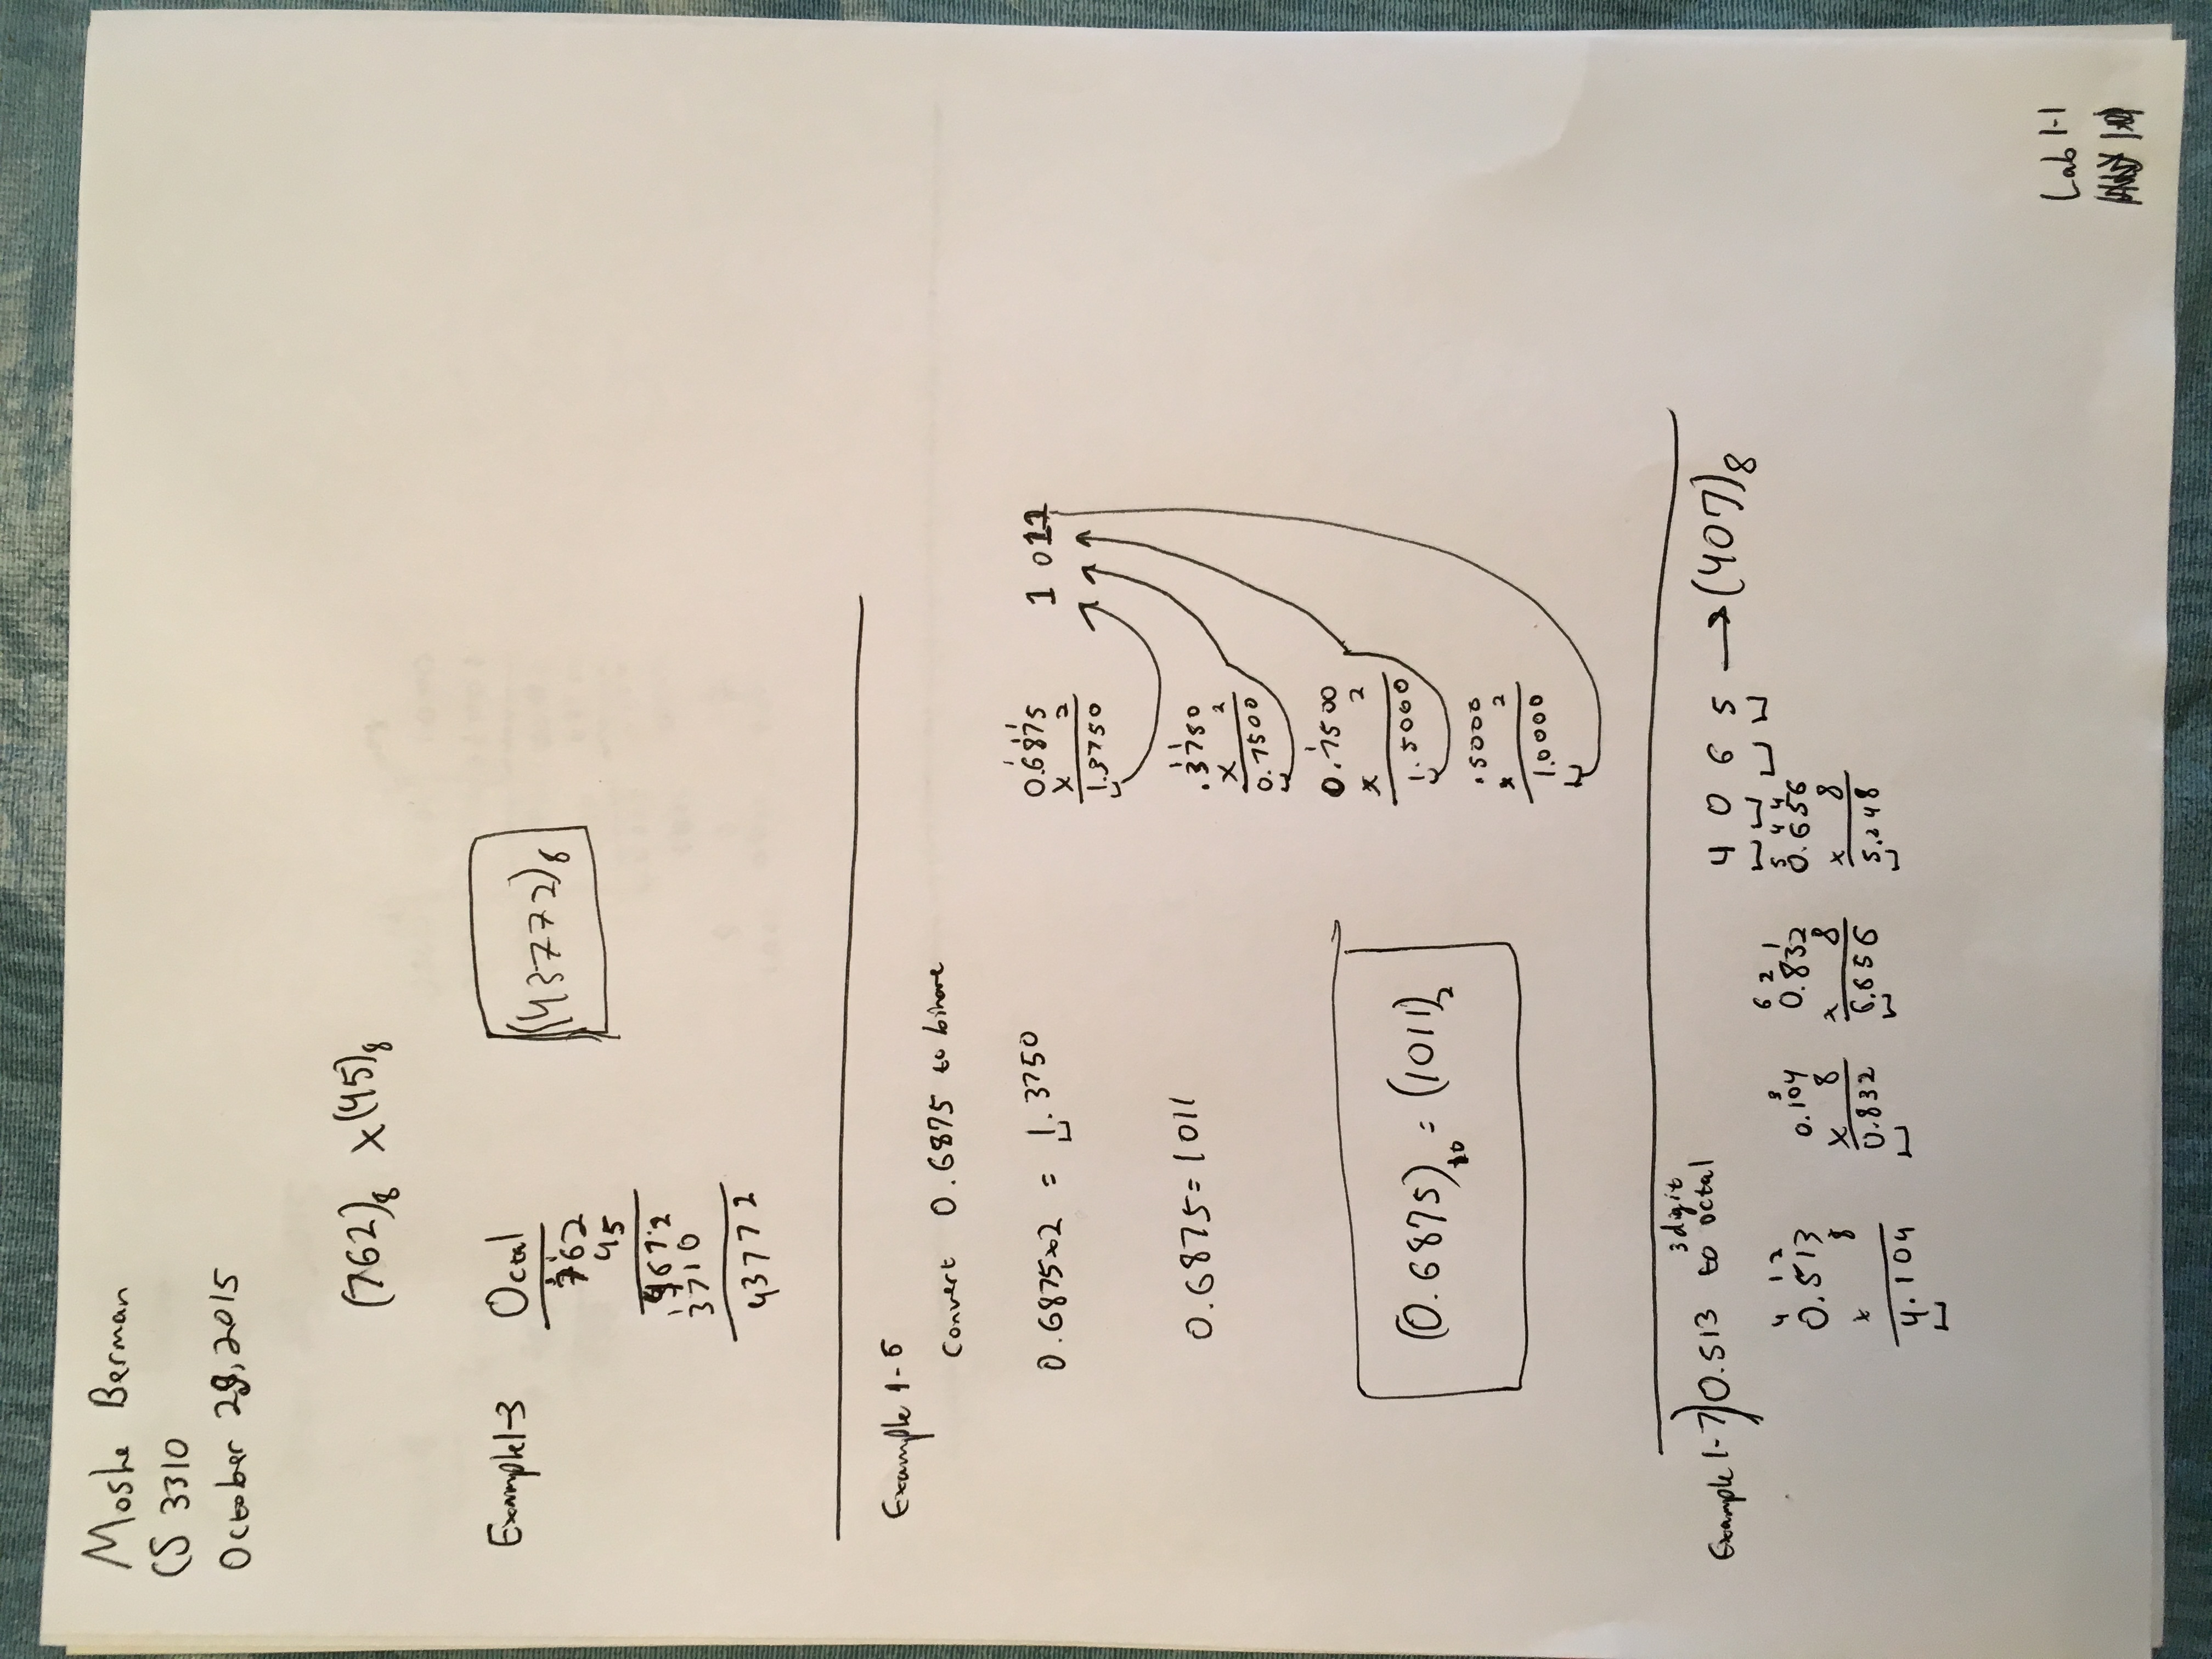 Moshe Berman
CS 3310
October 29, 2015
(762)₈ x (45)₈
Example 1-3
Octal
762
45
4672
3710
43772
(43772)₈
Example 1-6
Convert 0.6875 to binare
0.6875x2 = 1.3750
0.6875=1011
(0.6875)₁₀ = (1011)₂
1 1 1
0.6875
x 2
1.3750
1 011
1 1
.3750
x 2
0.7500
1
0.7500
x 2
1.5000
.5000
x 2
1.0000
3 digit
Example 1-7) 0.513 to octal
4 0 6 5 → (407)₈
4 1 2
0.513
x 8
4.104
3
0.104
x 8
0.832
6 2 1
0.832
x 8
6.656
5 4 4
0.656
x 8
5.248
Lab 1-1